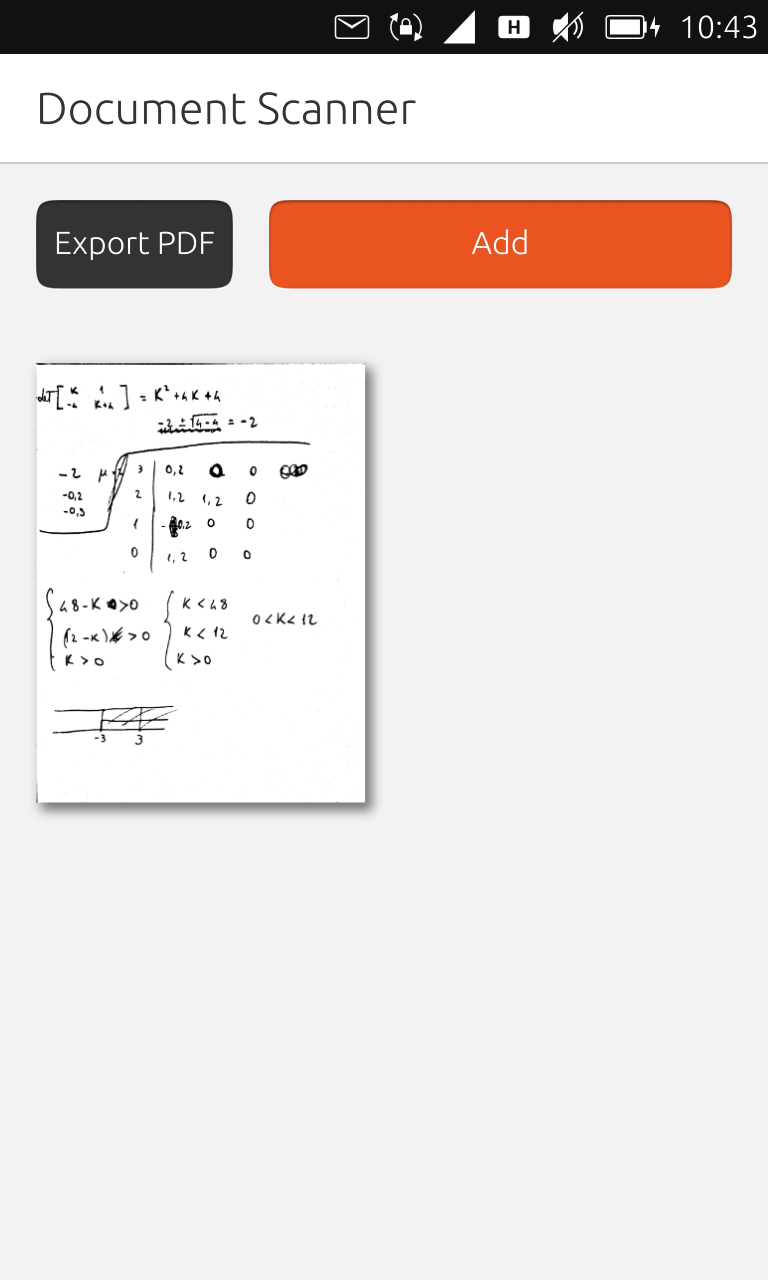 H 10:43
Document Scanner
Export PDF Add
det [ K 1 = K² + 4K + 4
-4 K+4 ]
-2 ± √4-4 = -2
-2 μ 3 0,2 0 0
-0,2 2 1,2 1,2 0
-0,3
1 - 0,2 0 0
0 1,2 0 0
48-K >0 K < 48
(12-K) >0 K < 12 0<K<12
K >0 K >0
-3 3